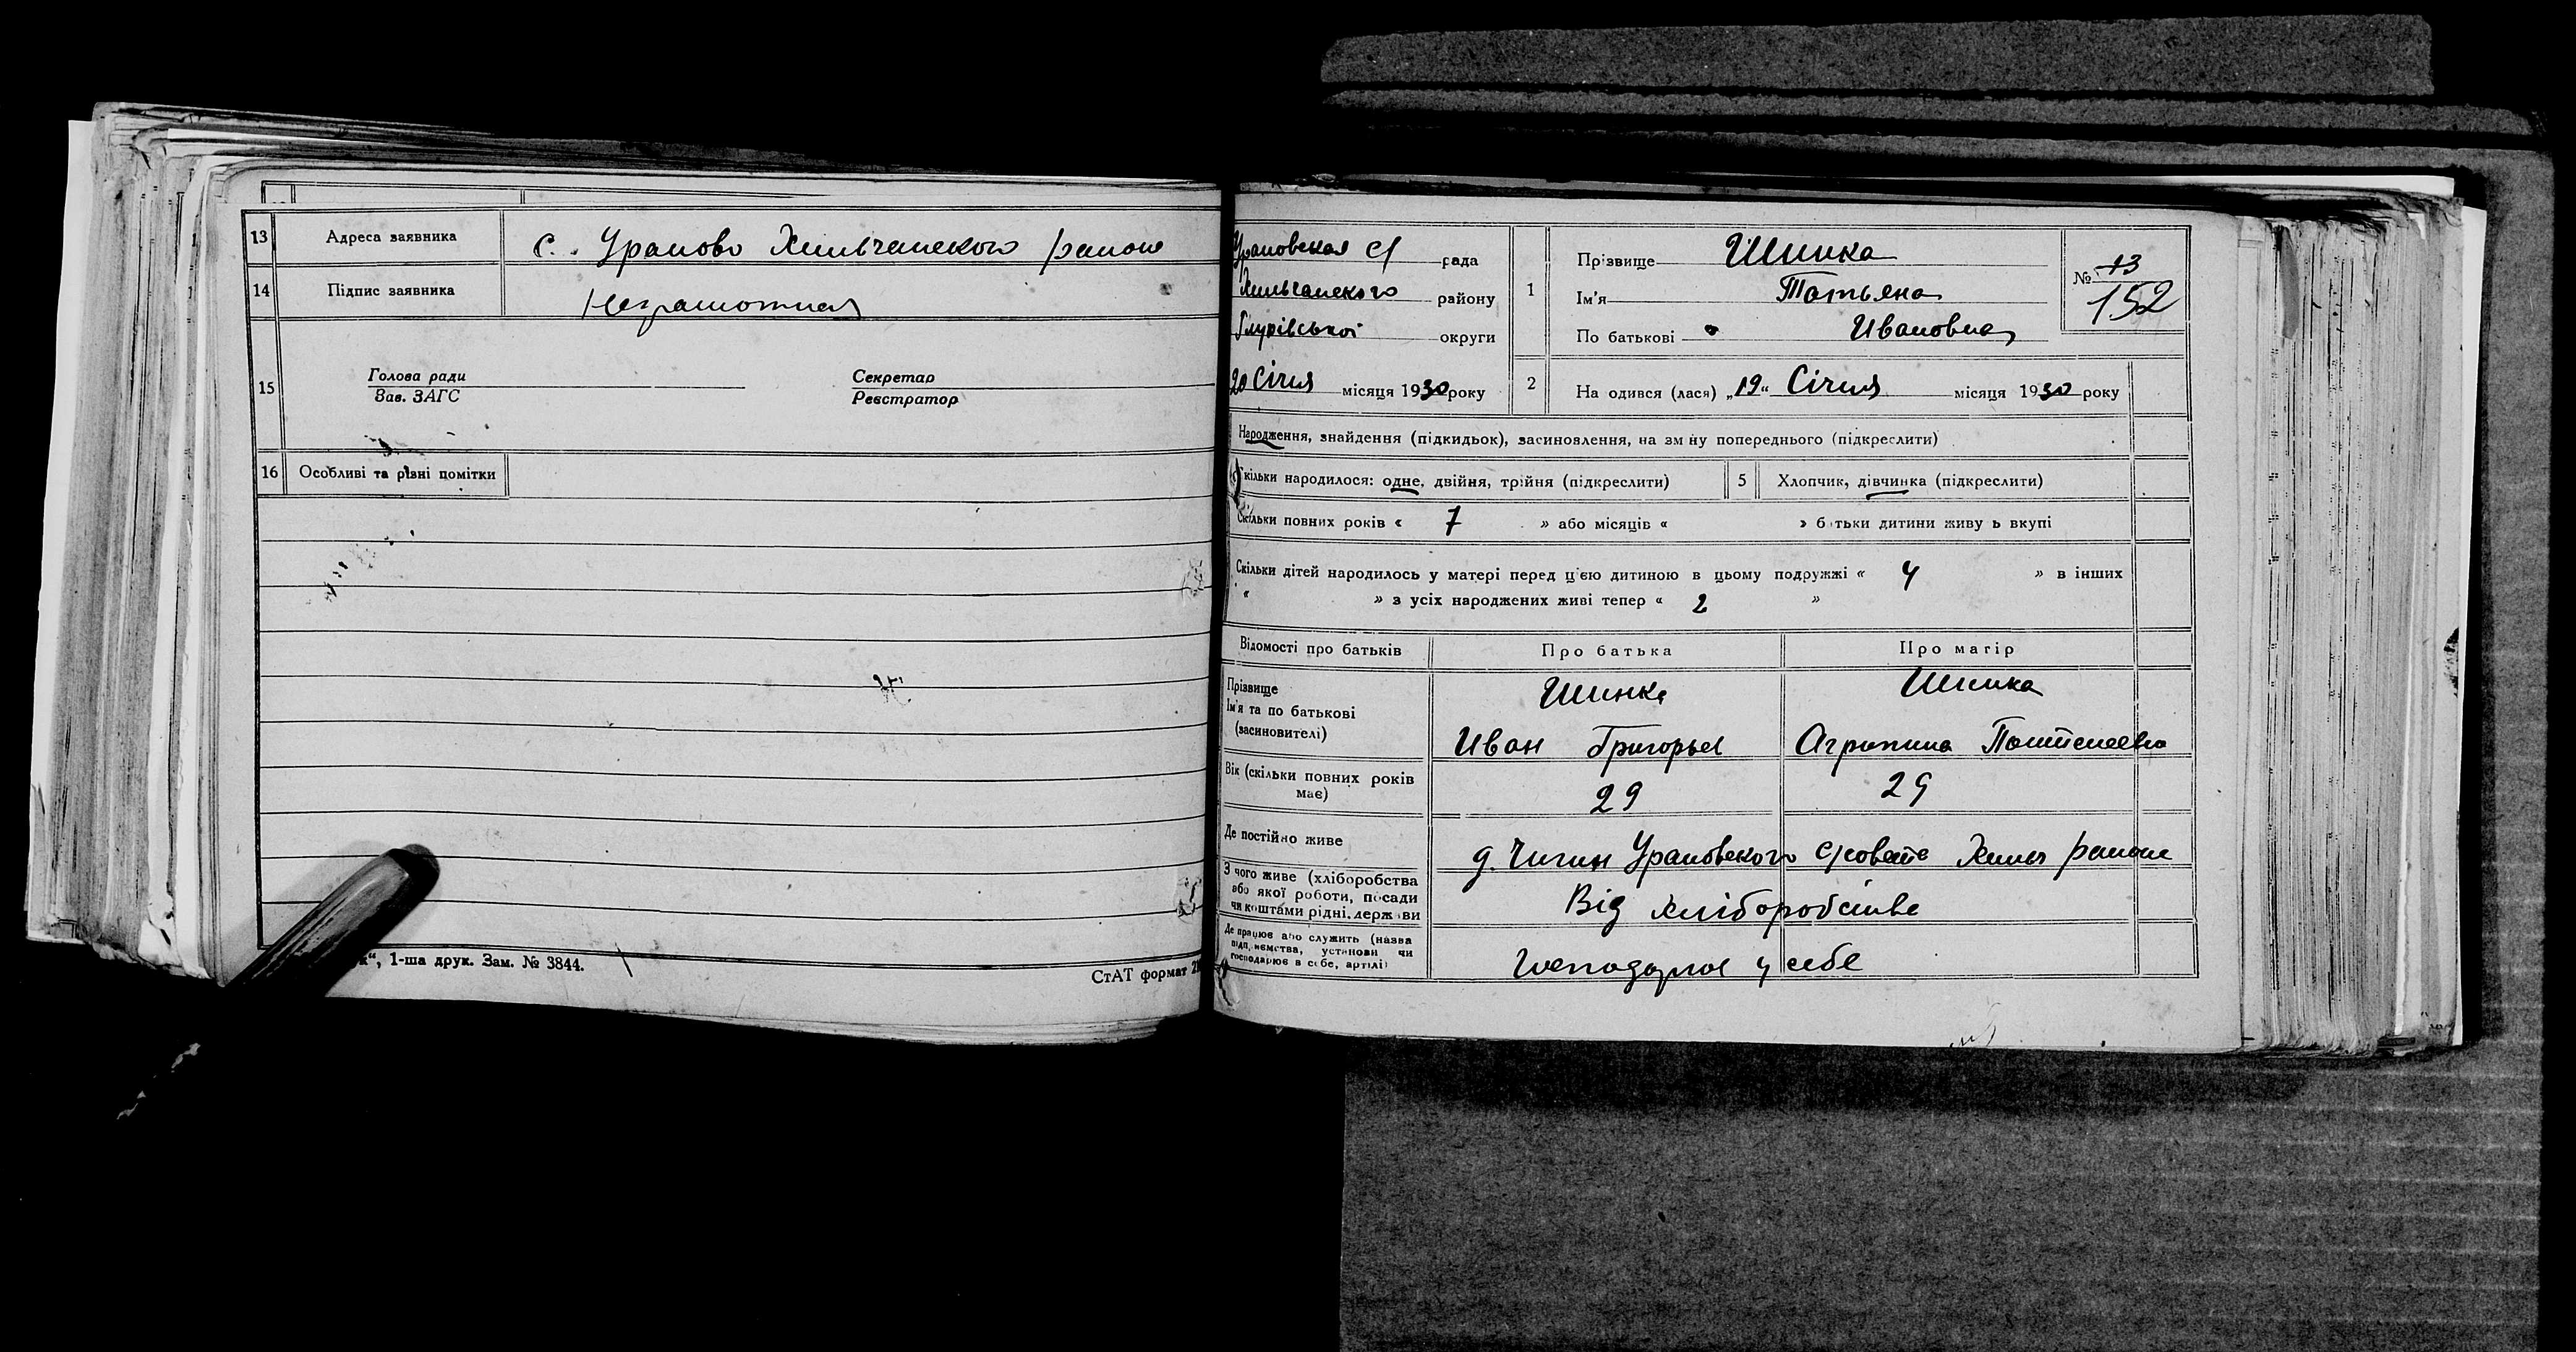 13 Адреса заявника с. Ураново Хильчанского района
14 Підпис заявника Неграмотная
15 Голова ради Секретар
Зав. ЗАГС Реєстратор
16 Особливі та різні помітки
1-ша друк. Зам. № 3844.
СтАТ формат
Урановская с/ рада
Хильчанского району
Глухівської округи
20 Січня місяця 1930 року
1 Прізвище Шинка
Ім'я Татьяна
По батькові Ивановна
№ 13
152
2 На одився (лася) „19“ Січня місяця 1930 року
Народження, знайдення (підкидьок), засиновлення, на зм ну попереднього (підкреслити)
кільки народилося: одне, двійня, трійня (підкреслити) 5 Хлопчик, дівчинка (підкреслити)
Скільки повних років « 7 » або місяців « » б тьки дитини живу ь вкупі
Скільки дітей народилось у матері перед цією дитиною в цьому подружжі « 4 » в інших
« » з усіх народжених живі тепер « 2 »
Відомості про батьків Про батька Про матір
Прізвище Шинка Шинка
Ім'я та по батькові
(засиновителі) Иван Григорьев Агрипина
Вік (скільки повних років
має) 29 29
Де постійно живе д. Чигин Урановского с/совета Хильч района
З чого живе (хліборобства
або якої роботи, посади
чи коштами рідні, держ ви Від хліборобства
Де працює або служить (назва
підп, иємства, установи чи
господарює в себе, артілі) у себе